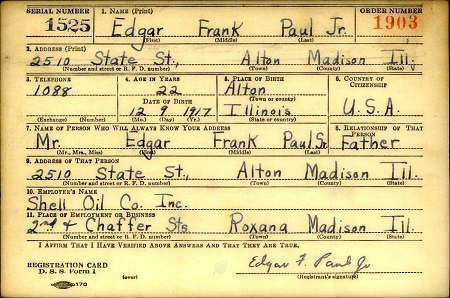 SERIAL NUMBER 1. NAME (Print) ORDER NUMBER
1525 Edgar Frank Paul Jr. 1903
(First) (Middle) (Last)
2. ADDRESS (Print)
2510 State St., Alton Madison Ill.
(Number and street or R. F. D. number) (Town) (County) (State)
3. TELEPHONE 4. AGE IN YEARS 5. PLACE OF BIRTH 6. COUNTRY OF CITIZENSHIP
1088 22 Alton
DATE OF BIRTH (Town or county)
12 9 1917 Illinois U.S.A.
(Exchange) (Number) (Mo.) (Day) (Yr.) (State or country)
7. NAME OF PERSON WHO WILL ALWAYS KNOW YOUR ADDRESS 8. RELATIONSHIP OF THAT PERSON
Mr. Edgar Frank Paul Sr. Father
(Mr., Mrs., Miss) (First) (Middle) (Last)
9. ADDRESS OF THAT PERSON
2510 State St., Alton Madison Ill.
(Number and street or R. F. D. number) (Town) (County) (State)
10. EMPLOYER'S NAME
Shell Oil Co. Inc.
11. PLACE OF EMPLOYMENT OR BUSINESS
2nd & Chaffer Sts Roxana Madison Ill.
(Number and street or R. F. D. number) (Town) (County) (State)
I AFFIRM THAT I HAVE VERIFIED ABOVE ANSWERS AND THAT THEY ARE TRUE.
REGISTRATION CARD
D. S. S. Form 1 (over) Edgar F. Paul Jr
(Registrant's signature)
170